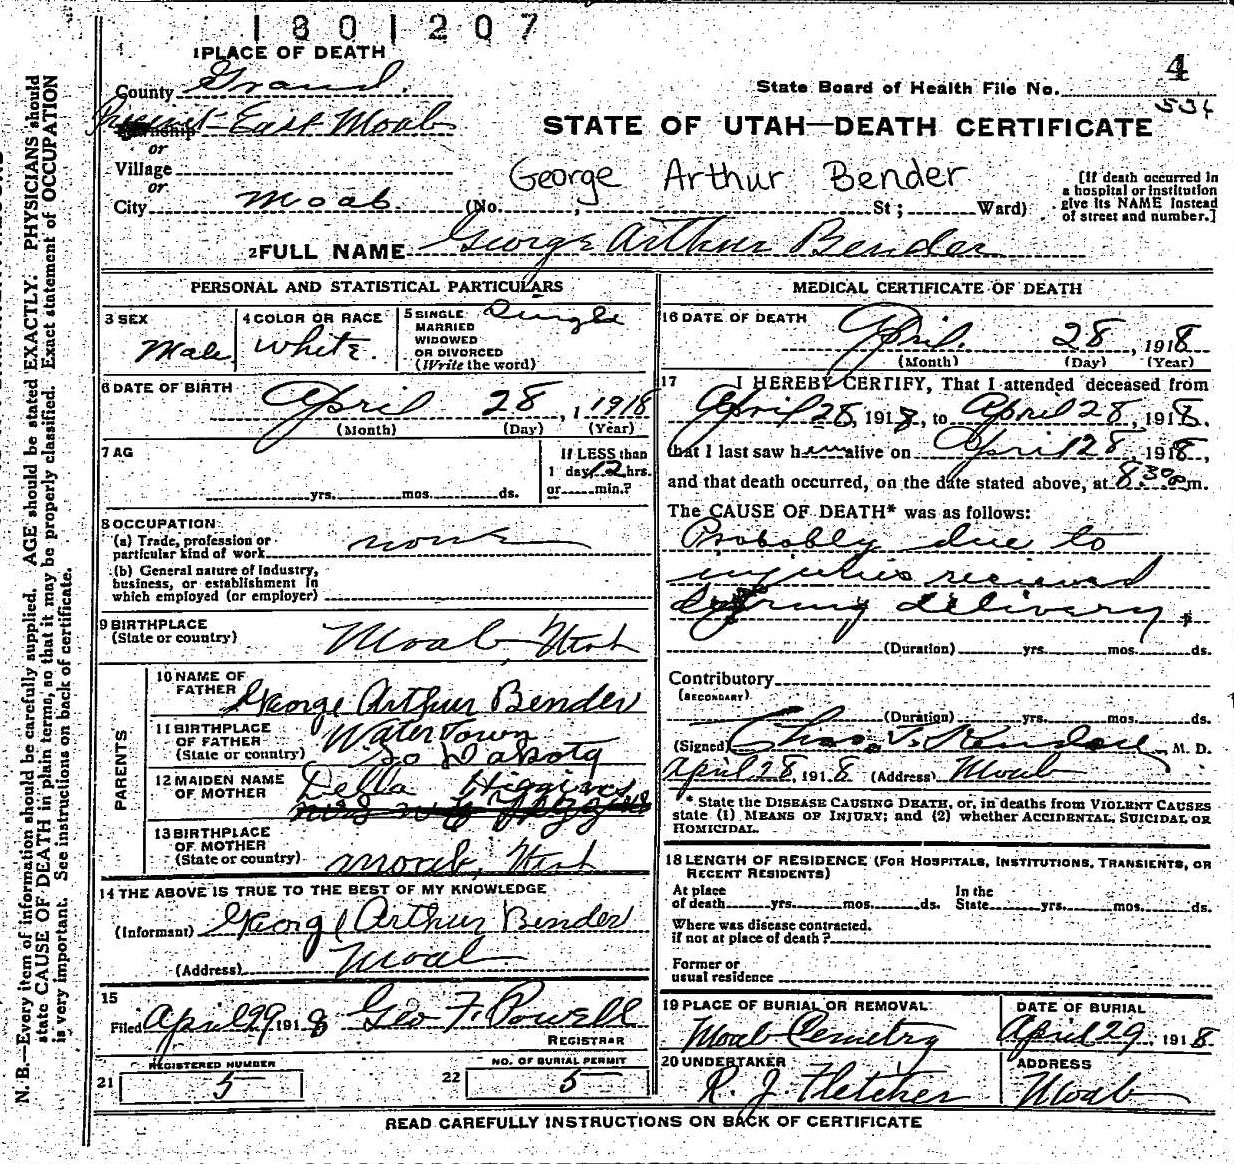 1801207
1 PLACE OF DEATH
4
County Grand.
State Board of Health File No.
534
Precinct East Moab
STATE OF UTAH—DEATH CERTIFICATE
or
Village
or
George Arthur Bender
[If death occurred in
a hospital or institution
give its NAME instead
of street and number.]
City Moab. (No. , St ; Ward)
2 FULL NAME George Arthur Bender
PERSONAL AND STATISTICAL PARTICULARS
3 SEX
Male
4 COLOR OR RACE
White.
5 SINGLE
MARRIED
WIDOWED
OR DIVORCED
(Write the word)
Single
6 DATE OF BIRTH
April 28, 1 1918
(Month) (Day) (Year)
7 AG
yrs. mos. ds.
If LESS than
1 day, 12 hrs.
or min.?
8 OCCUPATION
(a) Trade, profession or
particular kind of work none
(b) General nature of industry,
business, or establishment in
which employed (or employer)
9 BIRTHPLACE
(State or country)
Moab, Utah
PARENTS
10 NAME OF
FATHER
George Arthur Bender
11 BIRTHPLACE
OF FATHER
(State or country)
WaterTown
So Dakota
12 MAIDEN NAME
OF MOTHER
Della Higgins
13 BIRTHPLACE
OF MOTHER
(State or country)
Moab, Utah
14 THE ABOVE IS TRUE TO THE BEST OF MY KNOWLEDGE
(Informant) George Arthur Bender
(Address) Moab.
15
Filed April 29 1918 Geo F. Powell
REGISTRAR
REGISTERED NUMBER
21 5
NO. OF BURIAL PERMIT
22 5
MEDICAL CERTIFICATE OF DEATH
16 DATE OF DEATH
April. 28, 1918
(Month) (Day) (Year)
17 I HEREBY CERTIFY, That I attended deceased from
April 28, 1918, to April 28, 1918.
that I last saw h alive on April 28, 1918,
and that death occurred, on the date stated above, at 8 30 p m.
The CAUSE OF DEATH* was as follows:
Probably due to
injuries received
during delivery.
(Duration) yrs. mos. ds.
Contributory
(SECONDARY)
(Duration) yrs. mos. ds.
(Signed) Chas. M. D.
April 28, 1918 (Address) Moab
* State the DISEASE CAUSING DEATH, or, in deaths from VIOLENT CAUSES
state (1) MEANS OF INJURY; and (2) whether ACCIDENTAL, SUICIDAL OR
HOMICIDAL.
18 LENGTH OF RESIDENCE (FOR HOSPITALS, INSTITUTIONS, TRANSIENTS, OR
RECENT RESIDENTS)
At place
of death yrs. mos. ds.
In the
State yrs. mos. ds.
Where was disease contracted.
if not at place of death?
Former or
usual residence
19 PLACE OF BURIAL OR REMOVAL
Moab Cemetry
DATE OF BURIAL
April 29, 1918.
20 UNDERTAKER
R. J. Fletcher
ADDRESS
Moab
READ CAREFULLY INSTRUCTIONS ON BACK OF CERTIFICATE
N. B.—Every item of information should be carefully supplied. AGE should be stated EXACTLY. PHYSICIANS should
state CAUSE OF DEATH in plain terms, so that it may be properly classified. Exact statement of OCCUPATION
is very important. See instructions on back of certificate.